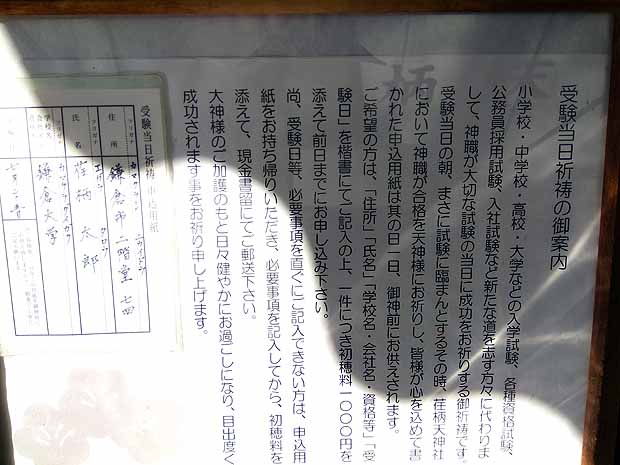 受験当日祈祷の御案内
小学校・中学校・高校・大学などの入学試験、各種資格試験、
公務員採用試験、入社試験など新たな道を志す方々に代わりま
して、神職が大切な試験の当日に成功をお祈りする御祈祷です。
受験当日の朝、まさに試験に臨まんとするその時、荏柄天神社
において神職が合格を天神様にお祈りし、皆様が心を込めて書
かれた申込用紙は其の日一日、御神前にお供えされます。
ご希望の方は、「住所」「氏名」「学校名・会社名・資格等」「受
験日」を楷書にてご記入の上、一件につき初穂料一〇〇〇円を
添えて前日までにお申し込み下さい。
尚、受験日等、必要事項を直ぐにご記入できない方は、申込用
紙をお持ち帰りいただき、必要事項を記入してから、初穂料を
添えて、現金書留にてご郵送下さい。
大神様のご加護のもと日々健やかにお過ごしになり、目出度く
成功されます事をお祈り申し上げます。
受験当日祈祷申込用紙
フリガナ
住所
鎌倉市二階堂七四
フリガナ
氏名
荏柄太郎
鎌倉大学